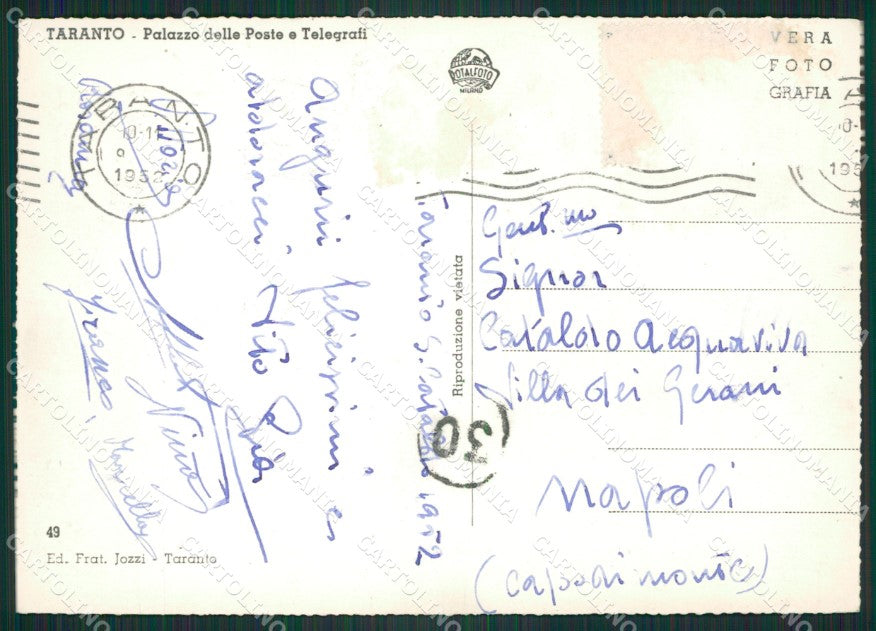 TARANTO - Palazzo delle Poste e Telegrafi
VERA
FOTO
GRAFIA
ROTALFOTO
MILANO
TARANTO
10-11
195
Taranto S. Cataldo 1952
Auguri felicissimi e
abbracci Vito
Nino
Franco
Marcello
Gent.mo
Signor
Cataldo Acquaviva
Villa dei Gerani
Napoli
(Capodimonte)
Riproduzione vietata
30
49
Ed. Frat. Jozzi - Taranto
CARTOLINOMANIA